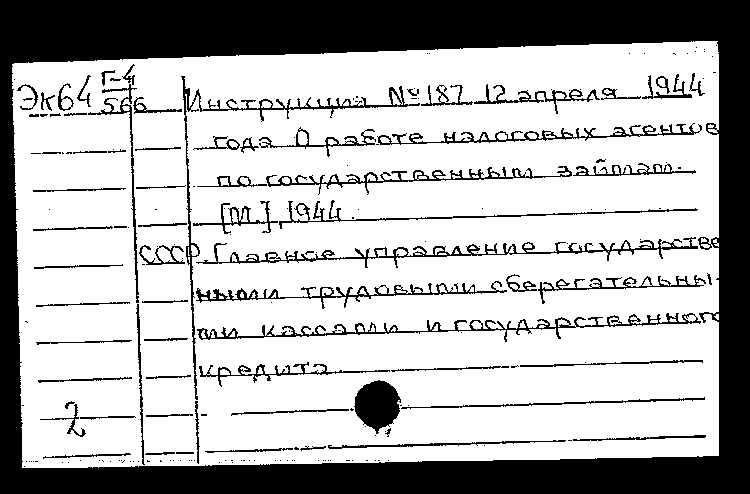 Эк64 Г-4/566 Инструкция №187 12 апреля 1944
года О работе налоговых агентов
по государственным займам.
[М.], 1944.
СССР. Главное управление государстве
нными трудовыми сберегательны-
ми кассами и государственного
кредита
2